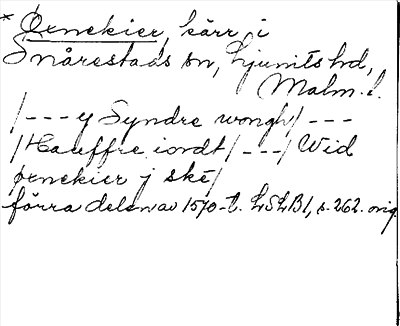 * Ørnekier, kärr i
Snårestads sn, Ljunits hd,
Malm. l.
/--- y Syndre wongh/---
/Hauffre iordt/---/ Wid
ørnekier j ske/
förra delen av 1570-t. LSLB1, s. 262. orig.